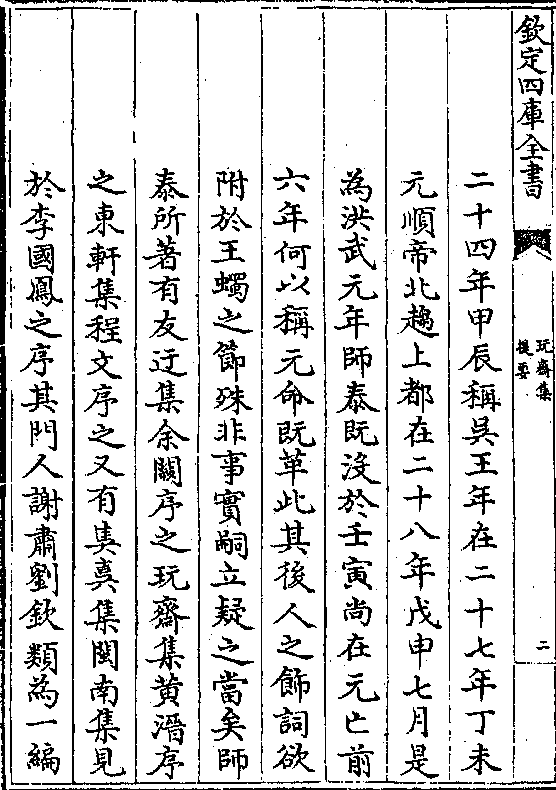 欽定四庫全書
玩齋集
提要
二
二十四年甲辰稱吳王年在二十七年丁未
元順帝北趨上都在二十八年戊申七月是
為洪武元年師泰既沒於壬寅尚在元亡前
六年何以稱元命既革此其後人之飾詞欲
附於王蠋之節殊非事實嗣立疑之當矣師
泰所著有友迂集余闕序之玩齋集黄溍序
之東軒集程文序之又有㒷𡔷集閩南集見
於李國鳳之序其門人謝肅劉欽類為一編